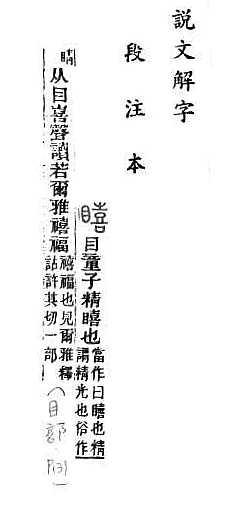 說文解字
段注本
瞦
目童子精瞦也當作目瞦也精
謂精光也俗作
睛
从目喜聲讀若爾雅禧福禧福也見爾雅釋
詁許其切一部
(目部